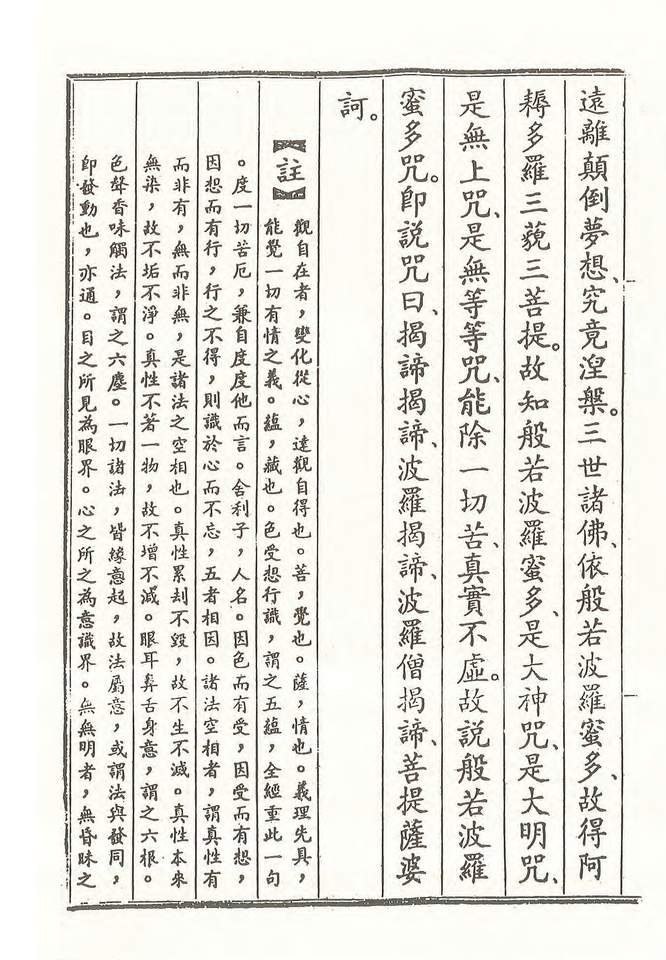 遠離顛倒夢想、究竟涅槃。三世諸佛、依般若波羅蜜多、故得阿
耨多羅三藐三菩提。故知般若波羅蜜多、是大神咒、是大明咒、
是無上咒、是無等等咒、能除一切苦、真實不虛。故說般若波羅
蜜多咒。即說咒曰、揭諦揭諦、波羅揭諦、波羅僧揭諦、菩提薩婆
訶。
【註】觀自在者，變化從心，達觀自得也。菩，覺也。薩，情也。義理先具，
能覺一切有情之義。蘊，藏也。色受想行識，謂之五蘊，全經重此一句
。度一切苦厄，兼自度度他而言。舍利子，人名。因色而有受，因受而有想，
因想而有行，行之不得，則識於心而不忘，五者相因。諸法空相者，謂真性有
而非有，無而非無，是諸法之空相也。真性累刦不毀，故不生不滅。真性本來
無染，故不垢不淨。真性不著一物，故不增不減。眼耳鼻舌身意，謂之六根。
色聲香味觸法，謂之六塵。一切諸法，皆緣意起，故法屬意，或謂法與發同，
即發動也，亦通。目之所見為眼界。心之所之為意識界。無無明者，無昏昧之